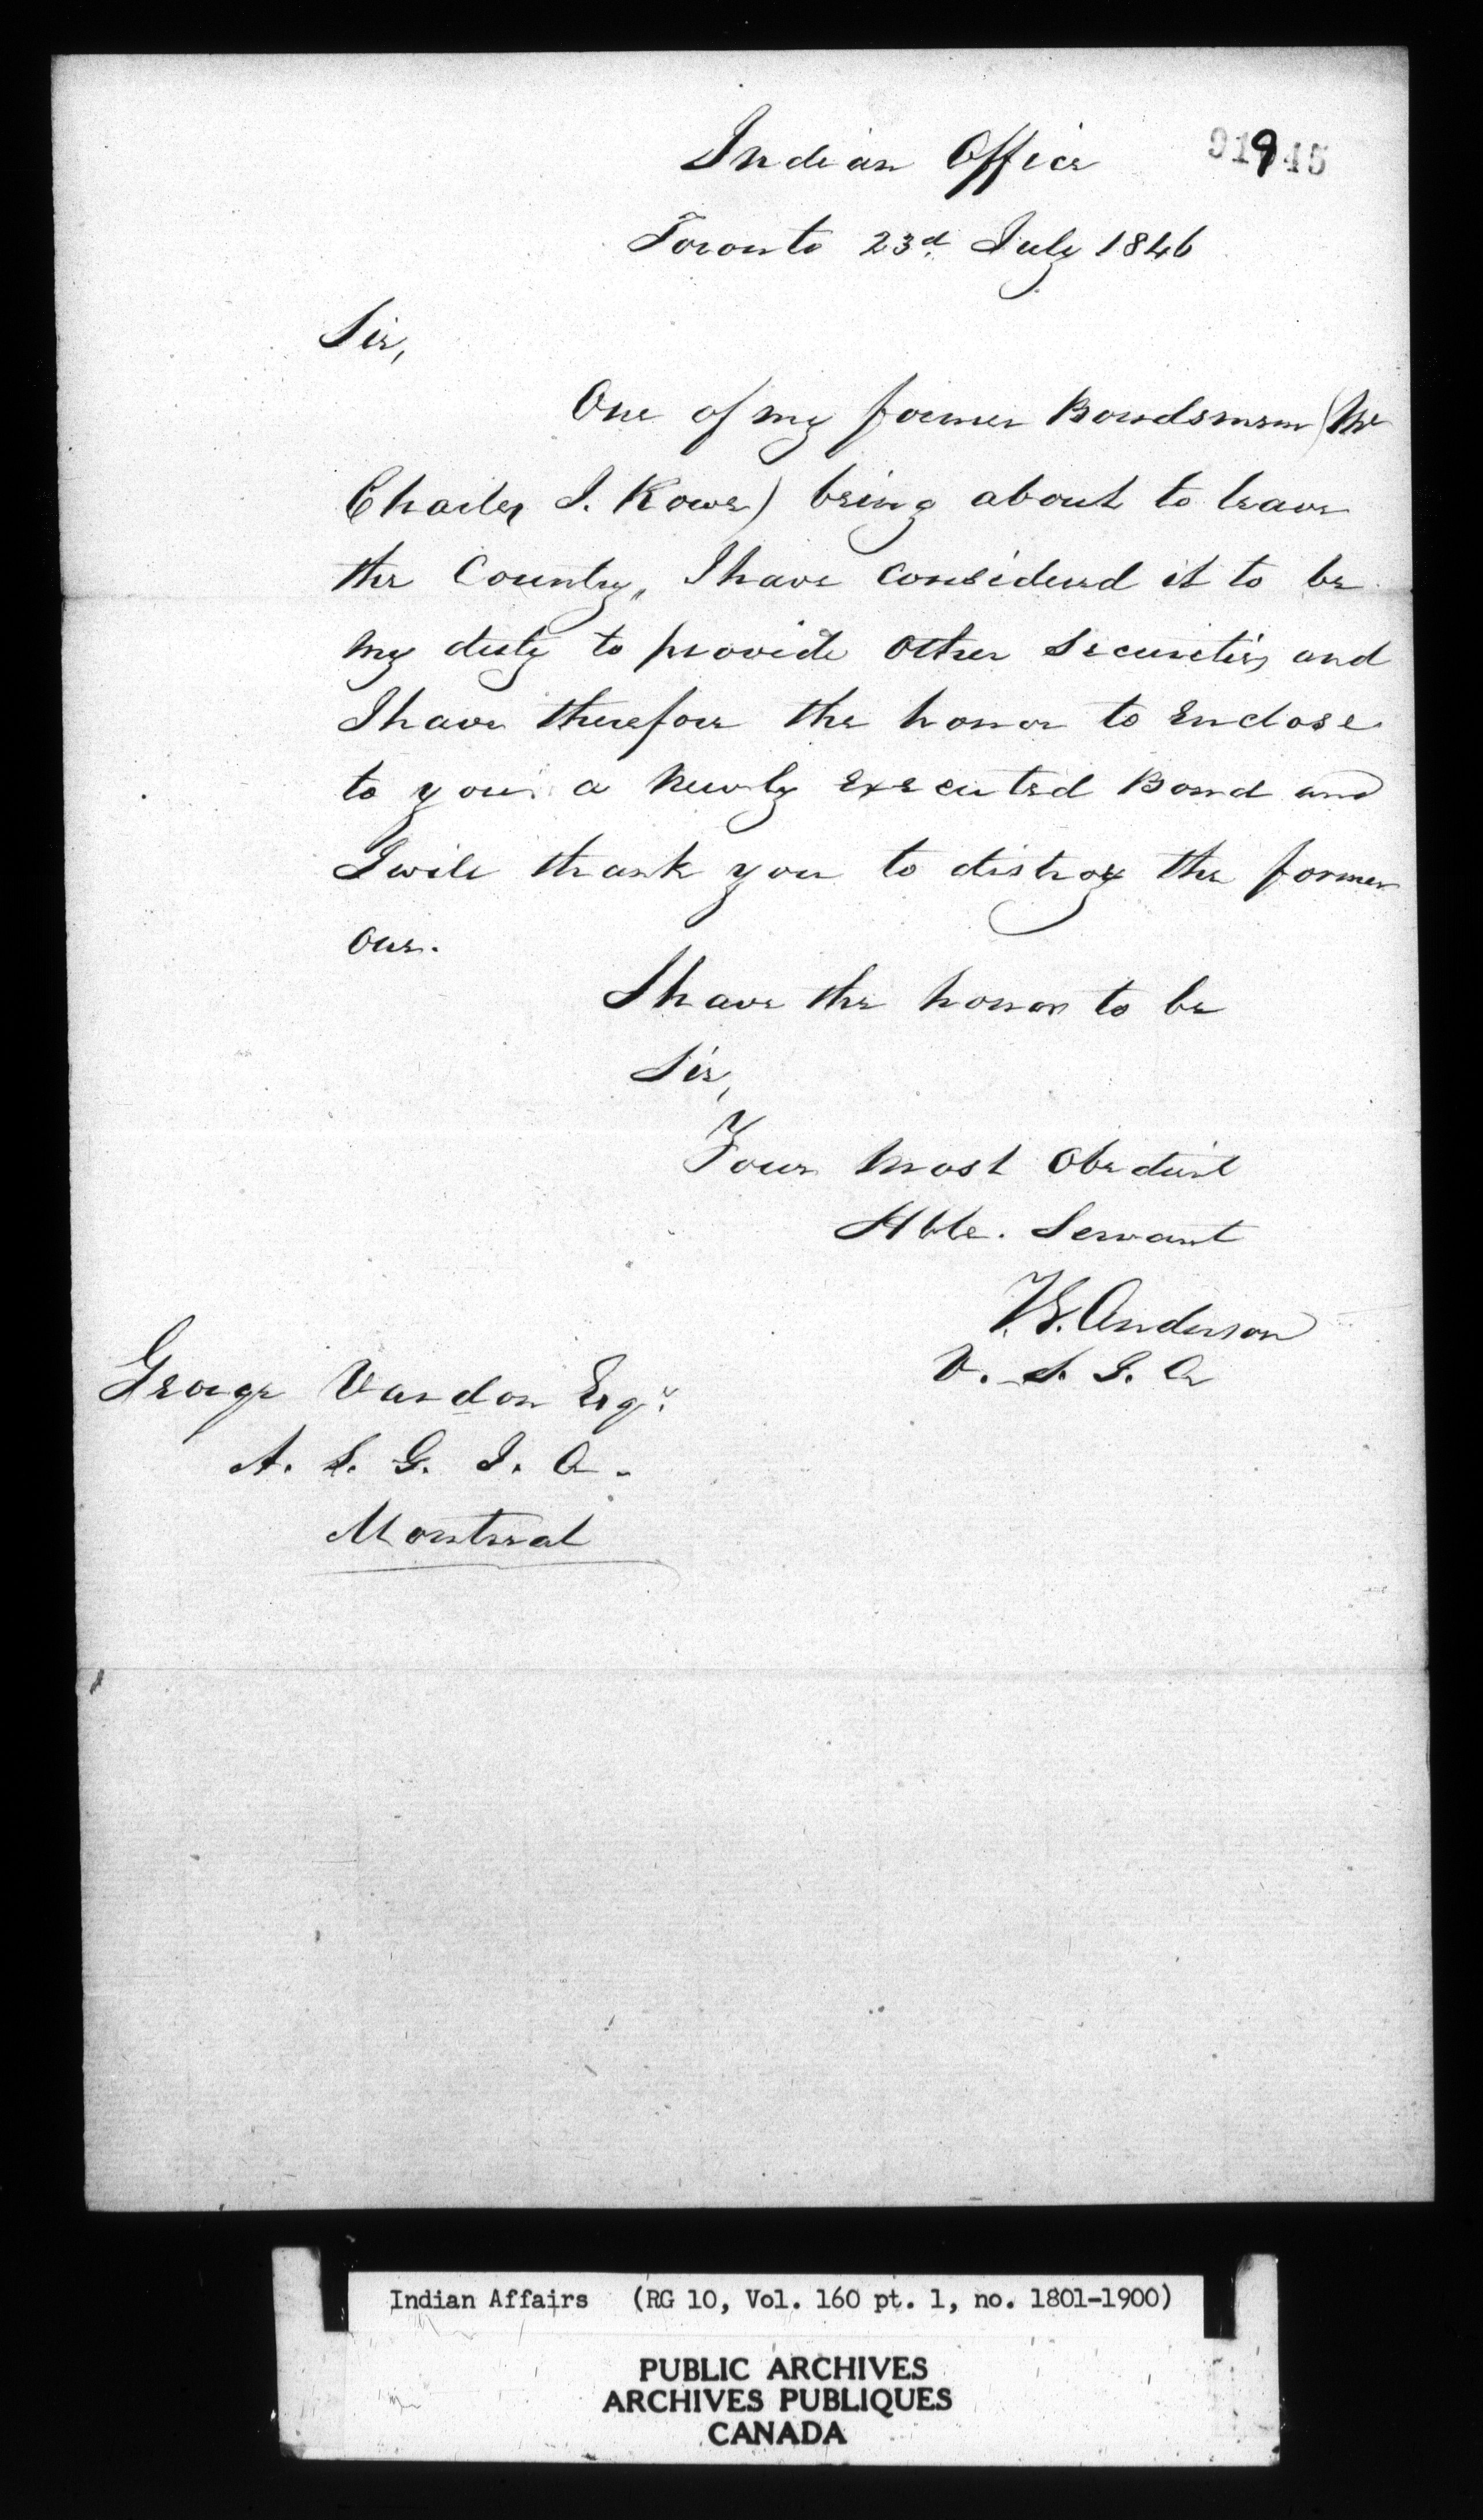 Indian Office
91945
Toronto 23d July 1846
Sir,
One of my former Bondsmen (Mr
Charles I. Rowe) being about to leave
the Country, I have considered it to be
my duty to provide other Securities and
I have therefore the honor to Enclose
to you a Newly Executed Bond and
I will thank you to distroy the former
one.
I have the honor to be
Sir,
Your most Obedient
Hble. Servant
T.G. Anderson
V. S. I. A
George Vardon Esqr.
A. S. G. I. A.
Montreal
Indian Affairs (RG 10, Vol. 160 pt. 1, no. 1801-1900)
PUBLIC ARCHIVES
ARCHIVES PUBLIQUES
CANADA